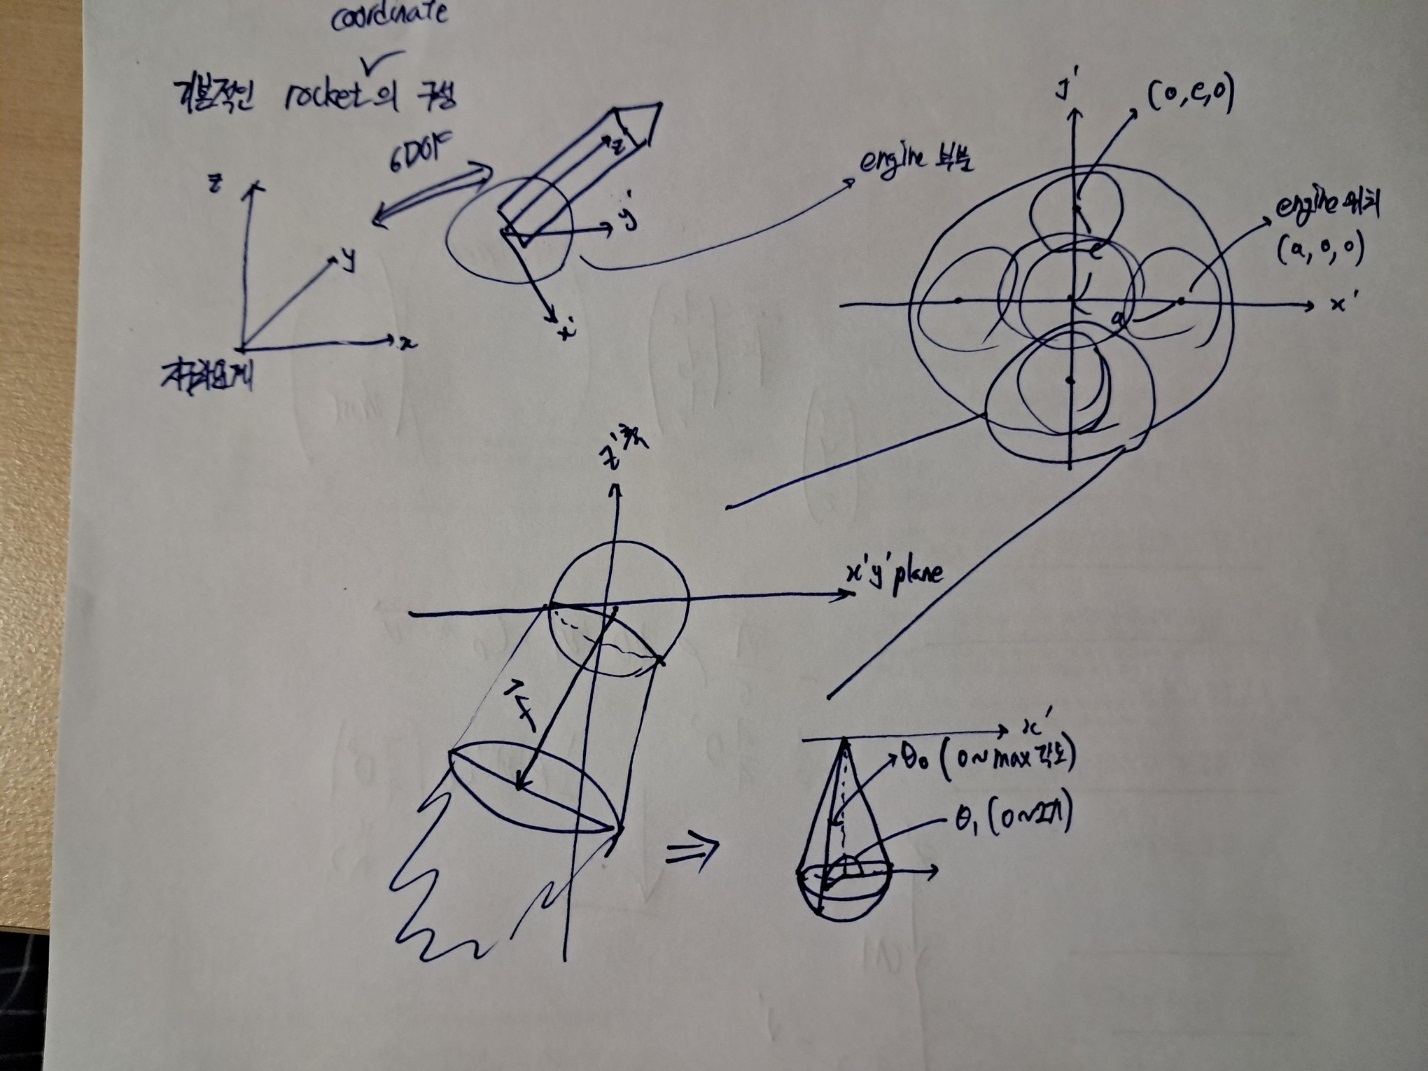 coordinate
기본적인 rocket의 구성
6DOF
z
y
x
z'
y'
x'
engine 부분
y'
(0,e,0)
engine 위치
(a,0,0)
x'
e
a
z'축
x'y' plane
x'
θ₀ (0~max 각도)
θ₁ (0~2π)